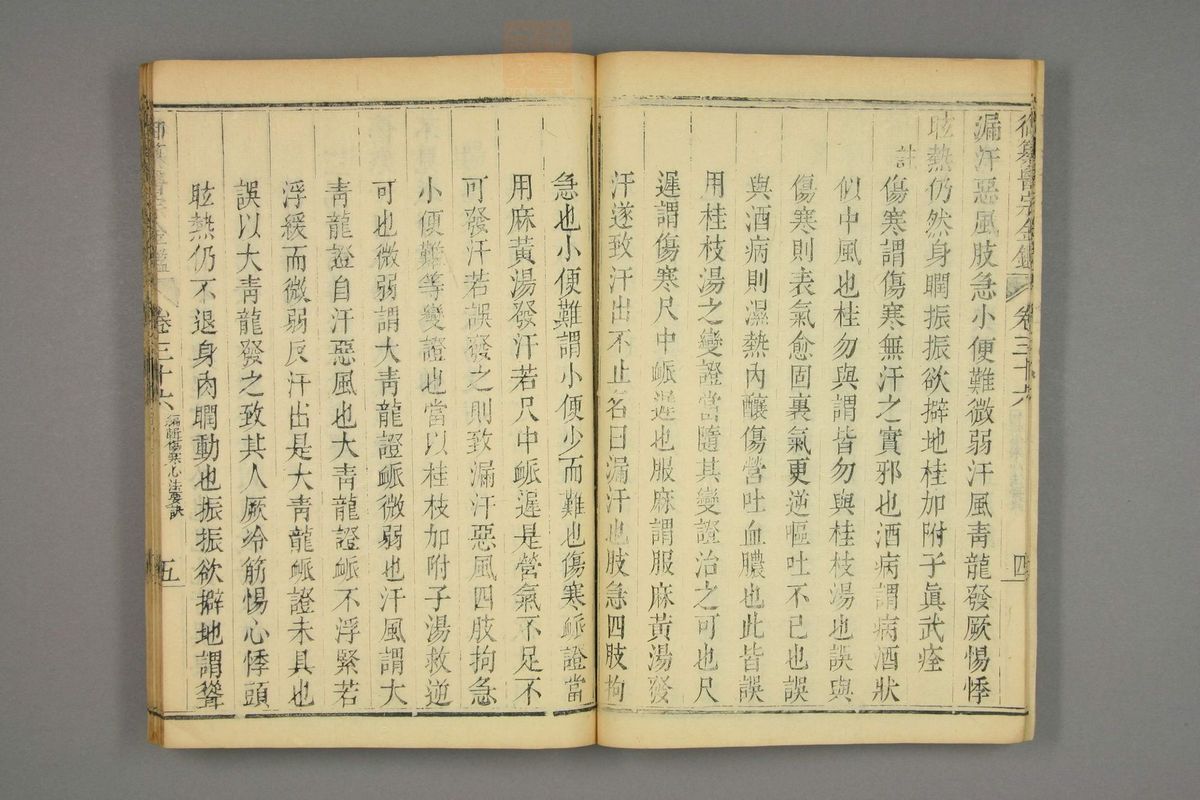 御纂醫宗金鑑 卷三十六 四
漏汗惡風肢急小便難微弱汗風青龍發厥惕悸
眩熱仍然身瞤振振欲擗地桂加附子眞武痊
註
傷寒謂傷寒無汗之實邪也酒病謂病酒狀
似中風也桂勿與謂皆勿與桂枝湯也誤與
傷寒則表氣愈固裏氣更逆嘔吐不已也誤
與酒病則濕熱內釀傷營吐血膿也此皆誤
用桂枝湯之變證當隨其變證治之可也尺
遲謂傷寒尺中脈遲也服麻謂服麻黃湯發
汗遂致汗出不止名曰漏汗也肢急四肢拘
急也小便難謂小便少而難也傷寒脈證當
用麻黃湯發汗若尺中脈遲是營氣不足不
可發汗若誤發之則致漏汗惡風四肢拘急
小便難等變證也當以桂枝加附子湯救逆
可也微弱謂大青龍證脈微弱也汗風謂大
青龍證自汗惡風也大青龍證脈不浮緊若
浮緩而微弱反汗出是大青龍脈證未具也
誤以大青龍發之致其人厥冷筋惕心悸頭
眩熱仍不退身肉瞤動也振振欲擗地謂聳
御纂醫宗金鑑 卷三十六 編輯傷寒心法要訣 五